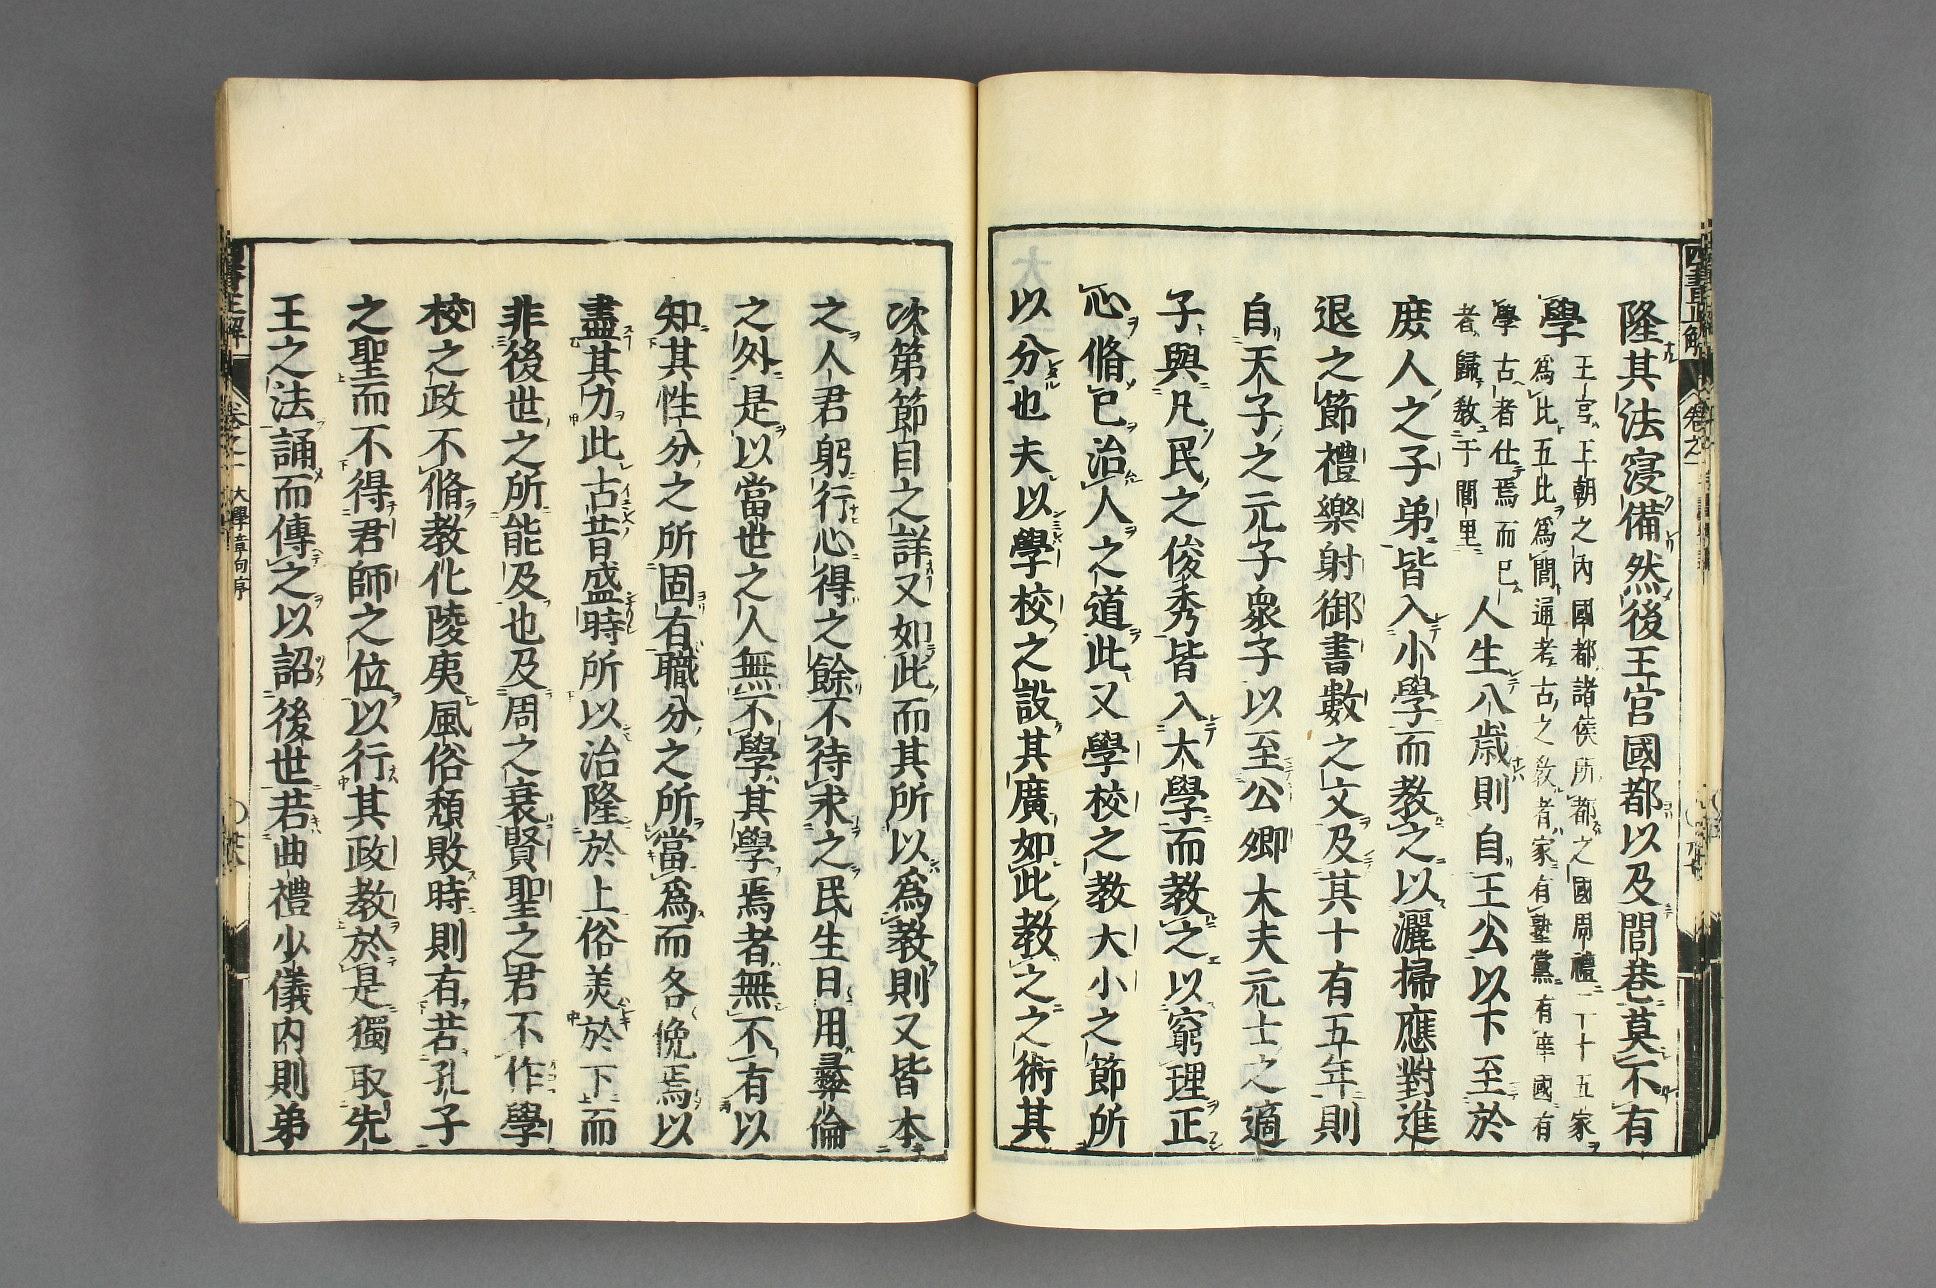 隆其法寖備然後王宮國都以及閭巷莫不有
學
王宮王朝之內國都諸侯所都之國周禮二十五家
爲比五比爲閭通考古之敎者家有塾黨有庠國有
學古者仕焉而已
者歸敎于閭里
人生八歲則自王公以下至於
庻人之子弟皆入小學而教之以灑掃應對進
退之節禮樂射御書數之文及其十有五年則
自天子之元子衆子以至公卿大夫元士之適
子與凡民之俊秀皆入大學而教之以窮理正
心脩已治人之道此又學校之教大小之節所
以分也夫以學校之設其廣如此教之之術其
次第節目之詳又如此而其所以爲教則又皆本
之人君躬行心得之餘不待求之民生日用彝倫
之外是以當世之人無不學其學焉者無不有以
知其性分之所固有職分之所當爲而各俛焉以
盡其力此古昔盛時所以治隆於上俗美於下而
非後世之所能及也及周之衰賢聖之君不作學
校之政不脩教化陵夷風俗頽敗時則有若孔子
之聖而不得君師之位以行其政教於是獨取先
王之法誦而傳之以詔後世若曲禮少儀内則弟
四書正解
卷之一
大學章句序